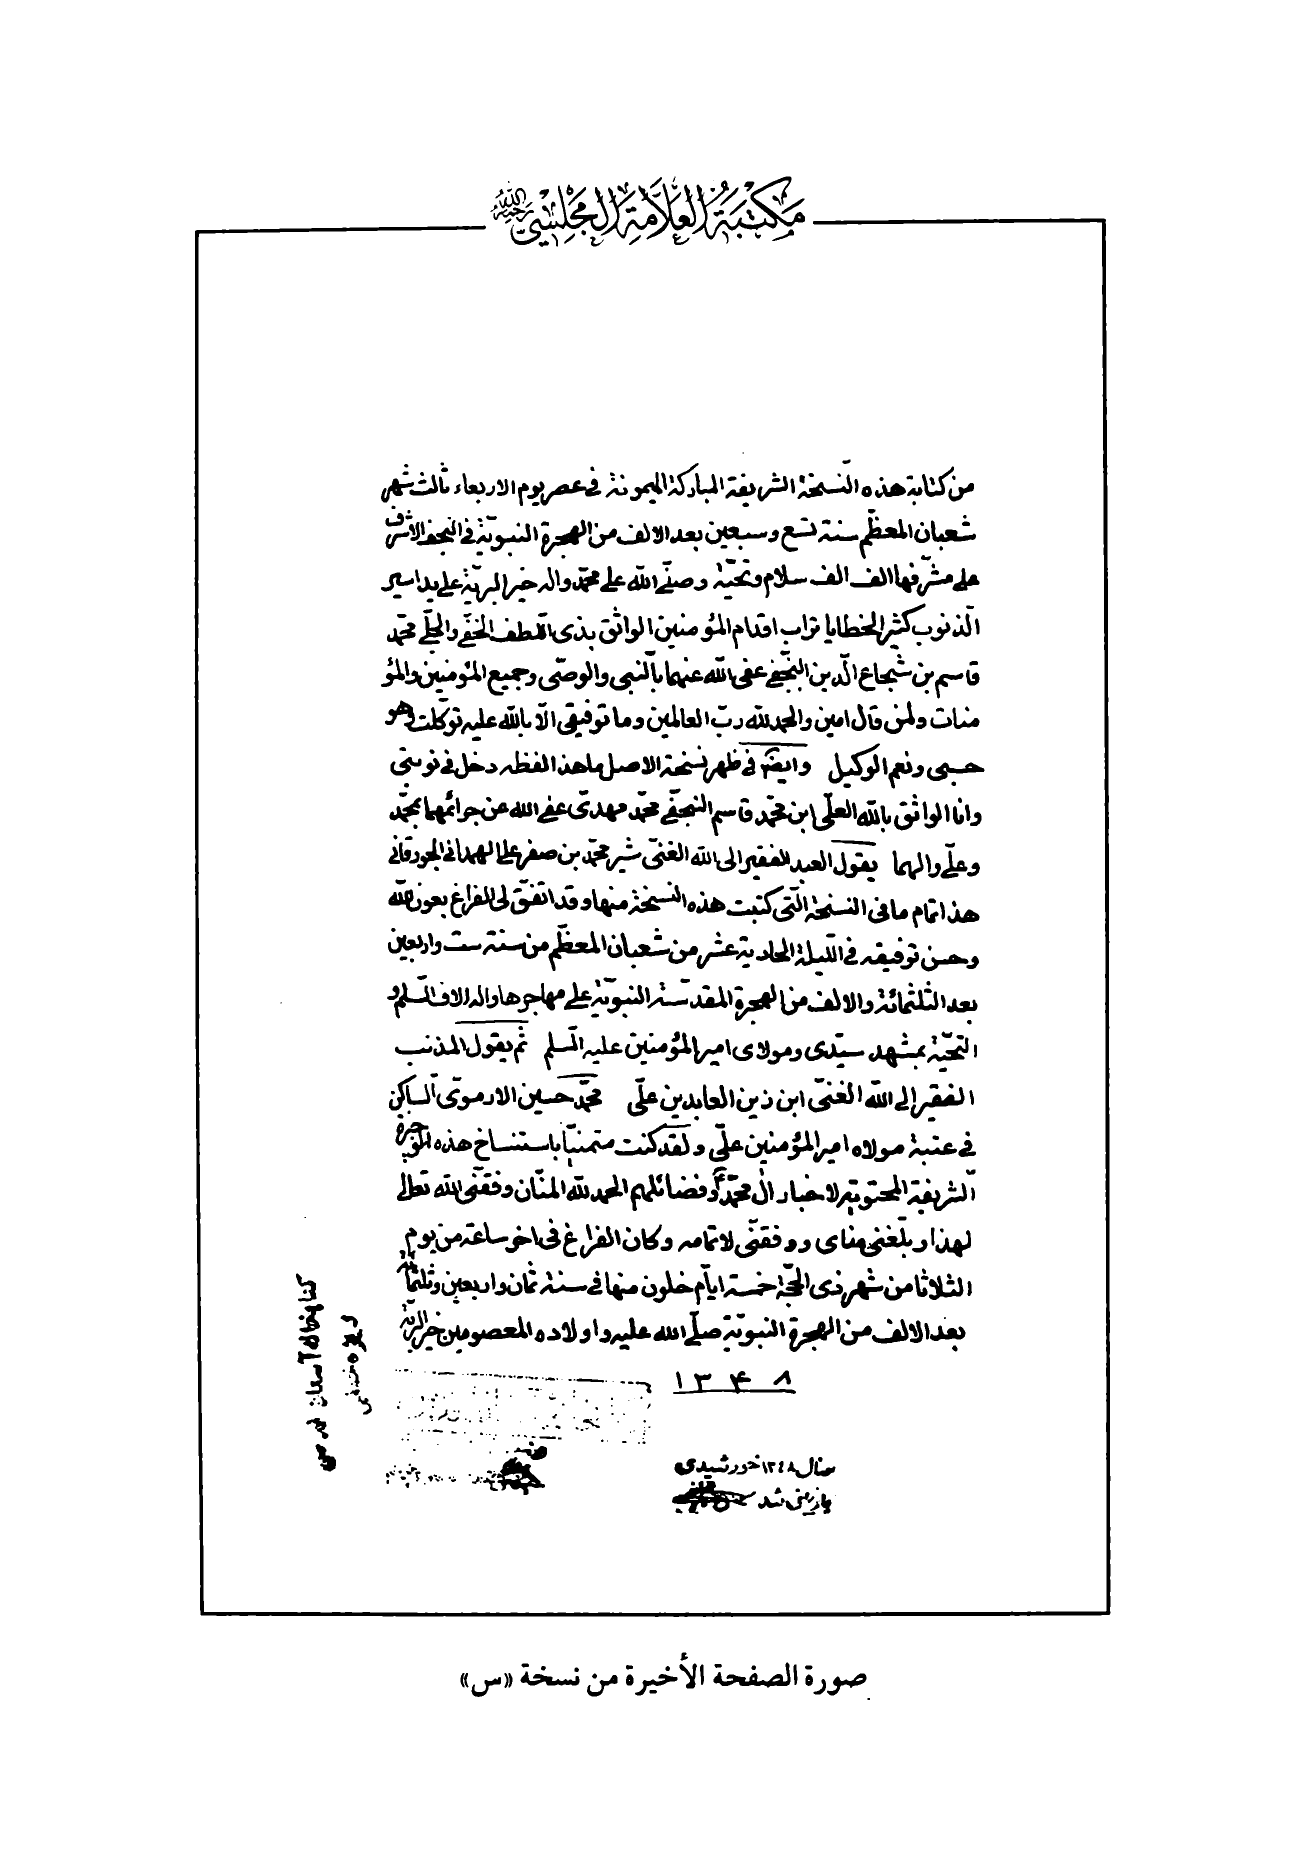 مكتبة العلامة المجلسي رحمه الله
من كتابة هذه النسخة الشريفة المباركة الميمونة في عصر يوم الاربعاء ثالث شهر
شعبان المعظم سنة تسع وسبعين بعد الالف من الهجرة النبوية في النجف الاشرف
على مشرفها الف الف سلام وتحية وصلى الله على محمد واله خير البرية على يد اسير
الذنوب كثير الخطايا تراب اقدام المؤمنين الواثق بذى اللطف الخفي والجلي محمد
قاسم بن شجاع الدين النجفي عفى الله عنهما بالنبي والوصي وجميع المؤمنين والمؤ
منات ولمن قال امين والحمد لله رب العالمين وما توفيقى الا بالله عليه توكلت وهو
حسبى ونعم الوكيل وايضا في ظهر نسخة الاصل ما هذا لفظه دخل في نوبتى
وانا الواثق بالله العلي ابن محمد قاسم النجفي محمد مهدى عفى الله عن جرائمهما بمحمد
وعلى والهما يقول العبد الفقير الى الله الغنى شير محمد بن صفر على الهمدانى الجورقانى
هذا تمام ما فى النسخة التى كتبت هذه النسخة منها وقد اتفق لى الفراغ بعون الله
وحسن توفيقه في الليلة الحادية عشر من شعبان المعظم من سنة ست واربعين
بعد الثلثمائة والالف من الهجرة المقدسة النبوية على مهاجرها واله الاف السلم و
التحية بمشهد سيدى ومولاى امير المؤمنين عليه السلم ثم يقول المذنب
الفقير إلى الله الغنى ابن زين العابدين على محمد حسين الارموى الساكن
في عتبة مولاه امير المؤمنين على ولقد كنت متمنيا باستنساخ هذه الوجيزة
الشريفة المحتوية لاخبار ال محمد وفضائلهم الحمد لله المنان وفقنى الله تعالى
لهذا وبلغنى مناى ووفقنى لاتمامه وكان الفراغ فى اخر ساعة من يوم
الثلاثا من شهر ذى الحجة خمسة ايام خلون منها في سنة ثمان واربعين وثلثمائة
بعد الالف من الهجرة النبوية صلى الله عليه واولاده المعصومين خير البرية
١٣۴٨
سال ١٣٤٨ خورشيدى
بازبينى شد
صورة الصفحة الأخيرة من نسخة «س»